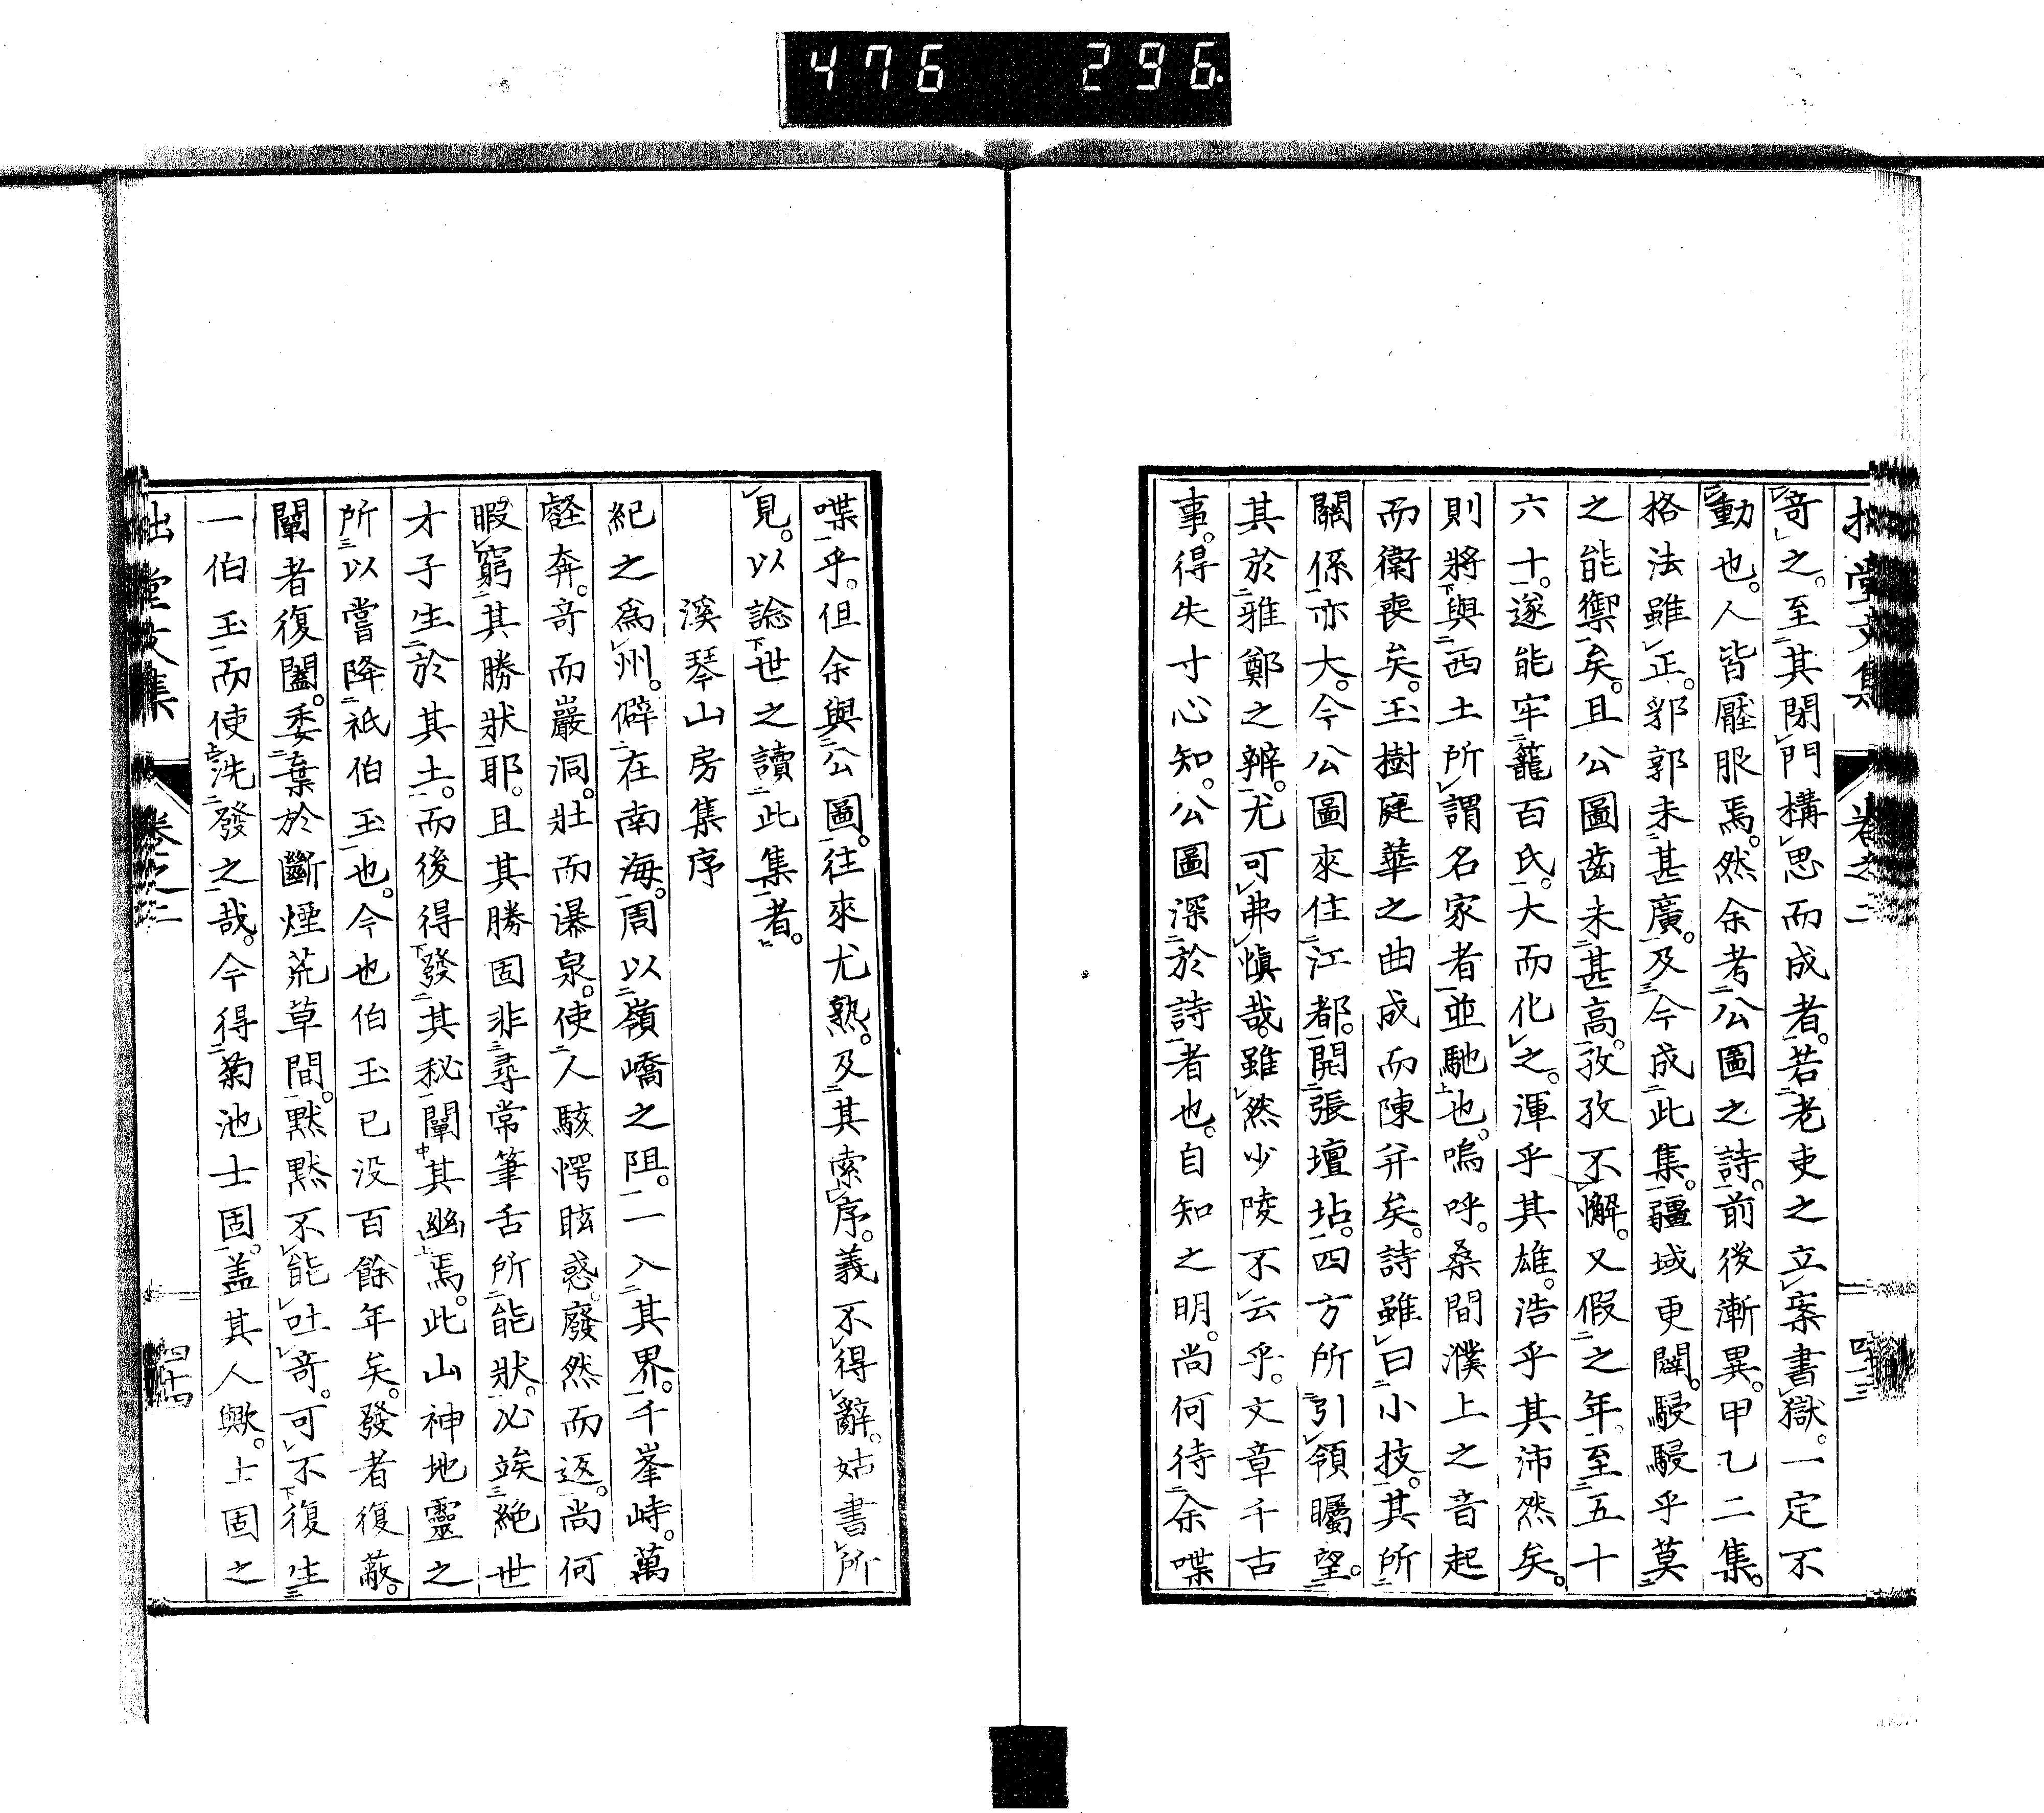 476 296
奇之。至其閉門構思而成者。若老吏之立案書獄。一定不
動也。人皆壓服焉。然余考公圖之詩。前後漸異。甲乙二集。
格法雖正。郛郭未甚廣。及今成此集。疆域更闢。駸駸乎莫
之能禦矣。且公圖齒未甚高。孜孜不懈。又假之年。至五十
六十。遂能牢籠百氏。大而化之。渾乎其雄。浩乎其沛然矣。
則將與西土所謂名家者並馳也。嗚呼。桑間濮上之音起
而衛喪矣。玉樹庭華之曲成而陳弁矣。詩雖曰小技。其所
關係亦大。今公圖來住江都。開張壇坫。四方所引領矚望。
其於雅鄭之辨。尤可弗慎哉。雖然少陵不云乎。文章千古
事。得失寸心知。公圖深於詩者也。自知之明。尚何待余喋
喋乎。但余與公圖。往來尤熟。及其索序。義不得辭。姑書所
見。以諗世之讀此集者。
溪琴山房集序
紀之為州。僻在南海。周以嶺嶠之阻。一入其界。千峯峙。萬
壑奔。奇而巖洞。壯而瀑泉。使人駭愕眩惑。廢然而返。尚何
暇窮其勝狀耶。且其勝固非尋常筆舌所能狀。必竢絕世
才子生於其土。而後得發其秘闡其幽焉。此山神地靈之
所以嘗降祇伯玉也。今也伯玉已沒百餘年矣。發者復蔽。
闡者復闔。委棄於斷煙荒草間。默默不能吐奇。可不復生
一伯玉而使洗發之哉。今得菊池士固。盖其人歟。士固之
拙堂文集 卷之二 四十四